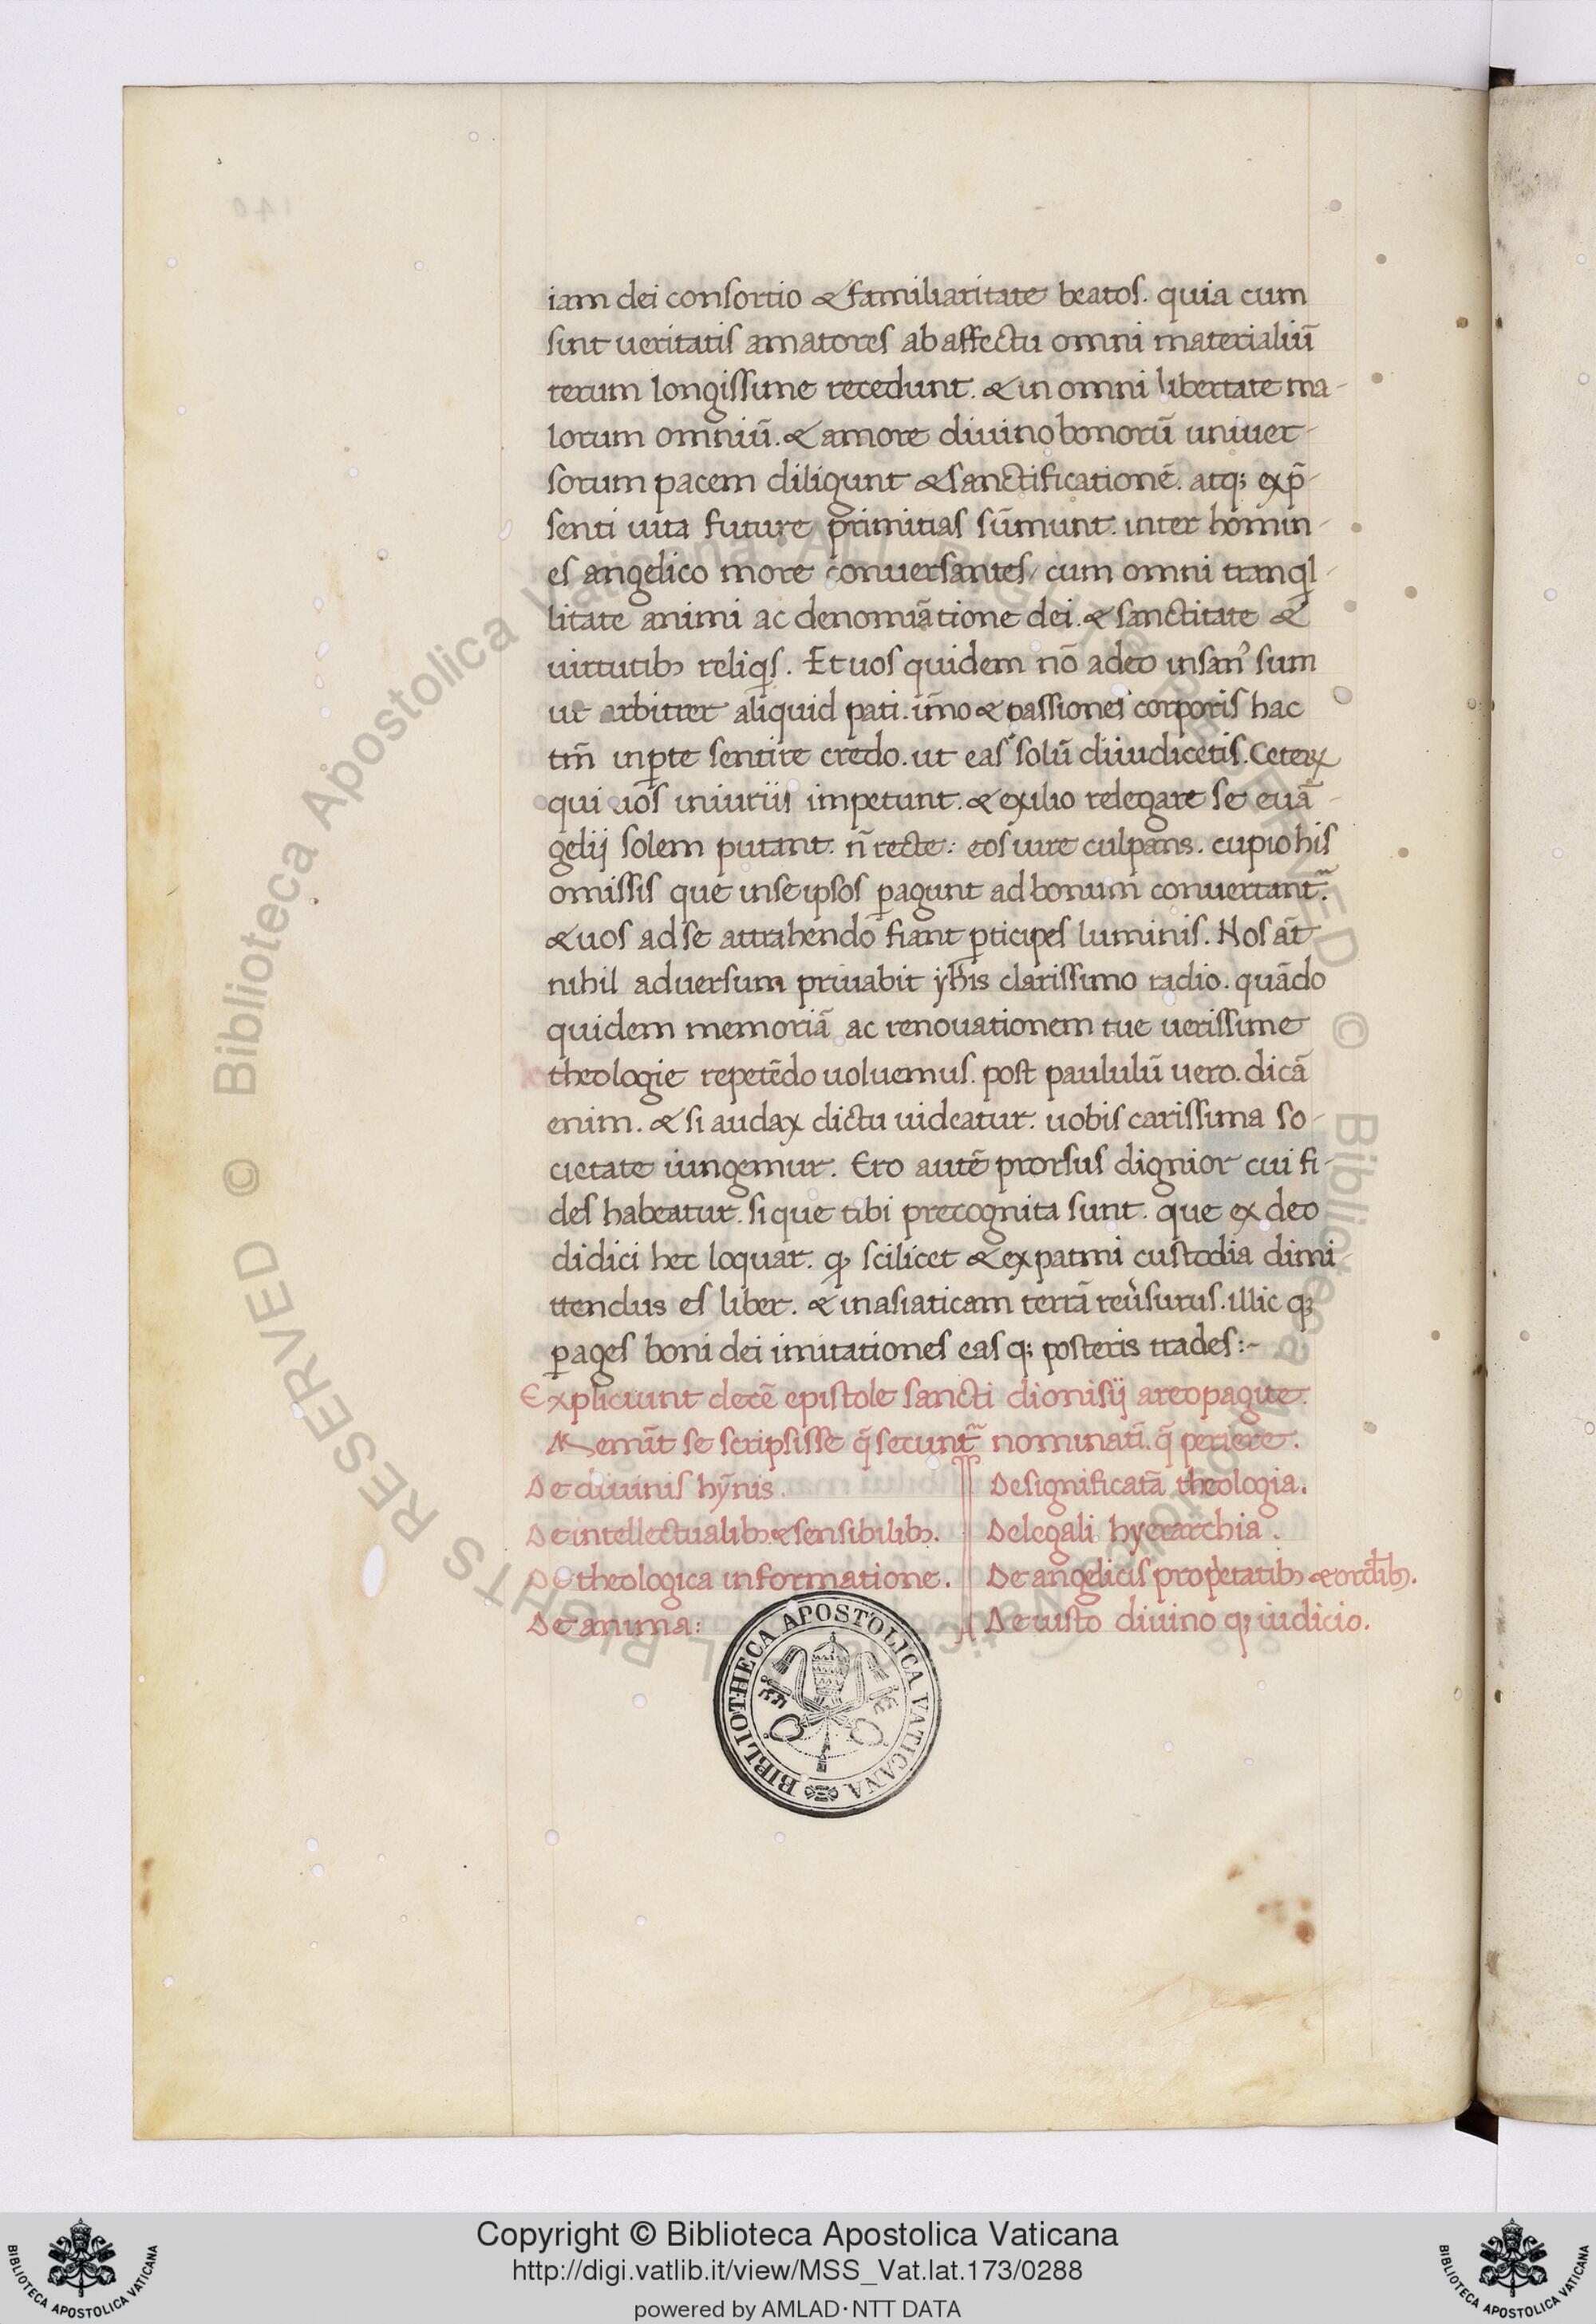 iam dei consortio & familiaritate beatos. quia cum
sint ueritatis amatores ab affectu omni materialiū
rerum longissime recedunt. & in omni libertate ma-
lorum omniū. & amore diuino bonorū uniuer-
sorum pacem diligunt & sanctificationē. atq; ex p̄-
senti uita future primitias sūmunt. inter homin-
es angelico more conuersantes / cum omni tranql-
litate animi ac denomiātione dei. & sanctitate &
uirtutibꝫ reliqis. Et uos quidem nō adeo insan' sum
ut arbitrer aliquid pati. im̄o & passiones corporis hac
tm̄ in ꝑte sentire credo. ut eas solū diiudicetis. Ceteꝝ
qui uos iniuriis impetunt. & exilio relegare se euā-
gelij solem putant. n̄ recte: eos iure culpans. cupio his
omissis que in se ipsos ꝑagunt ad bonum conuertant᷑.
& uos ad se attrahendo fiant ꝑticipes luminis. Nos āt
nihil aduersum priuabit yhis clarissimo radio. quādo
quidem memoriā ac renouationem tue uerissime
theologie repetēdo uoluemus. post paululū uero. dicā
enim. & si audax dictu uideatur. uobis carissima so-
cietate iungemur. Ero autē prorsus dignior cui fi-
des habeatur. si que tibi precognita sunt. que ex deo
didici hec loquar. ꝙ scilicet & ex patmi custodia dimi-
ttendus es liber. & in asiaticam terrā reu̓surus. illic q;
ꝑages boni dei imitationes eas q; posteris trades:-
Expliciunt decē epistole sancti dionisij areopagite.
Meminit se scripsisse q̄ secunt᷑ nominatī. q̄ periere.
De diuinis hȳnis.
De intellectualibꝫ & sensibilibꝫ.
De theologica informatione.
De anima:
De significatā theologia.
De legali hyerarchia.
De angelicis propetatibꝫ & ordībꝫ.
De iusto diuino q; iudicio.
BIBLIOTHECA APOSTOLICA VATICANA
© Biblioteca Apostolica Vaticana ALL RIGHTS RESERVED © Biblioteca Apostolica Vaticana ALL RIGHTS RESERVED
Copyright © Biblioteca Apostolica Vaticana
http://digi.vatlib.it/view/MSS_Vat.lat.173/0288
powered by AMLAD·NTT DATA
BIBLIOTECA APOSTOLICA VATICANA
BIBLIOTECA APOSTOLICA VATICANA